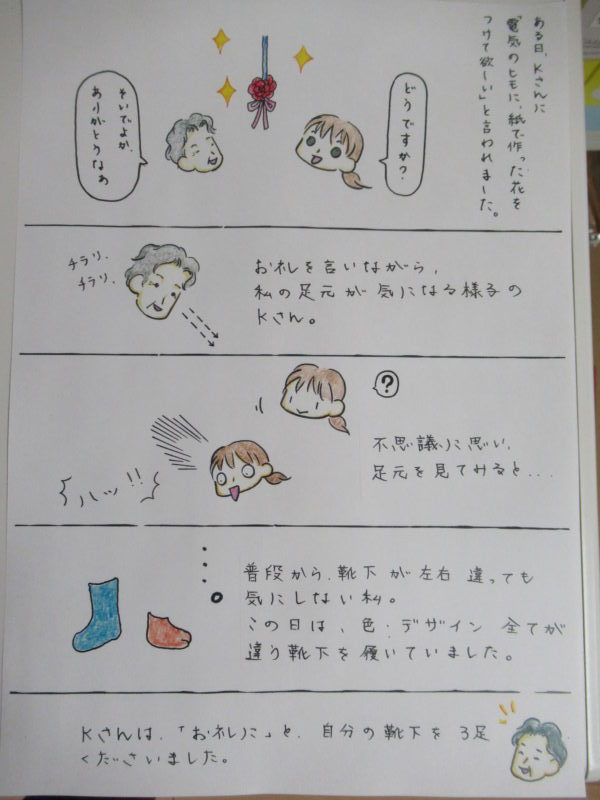 ある日、Kさんに
「電気のヒモに、紙で作った花を
つけて欲しい」と言われました。
どうですか?
そいでよか、
ありがとうなぁ
チラリ、
チラリ、
お礼を言いながら、
私の足元が気になる様子の
Kさん。
?
不思議に思い、
足元を見てみると...
ハッ!!
普段から、靴下が左右違っても
気にしない私。
この日は、色・デザイン全てが
違う靴下を履いていました。
Kさんは、「お礼に」と、自分の靴下を3足
くださいました。